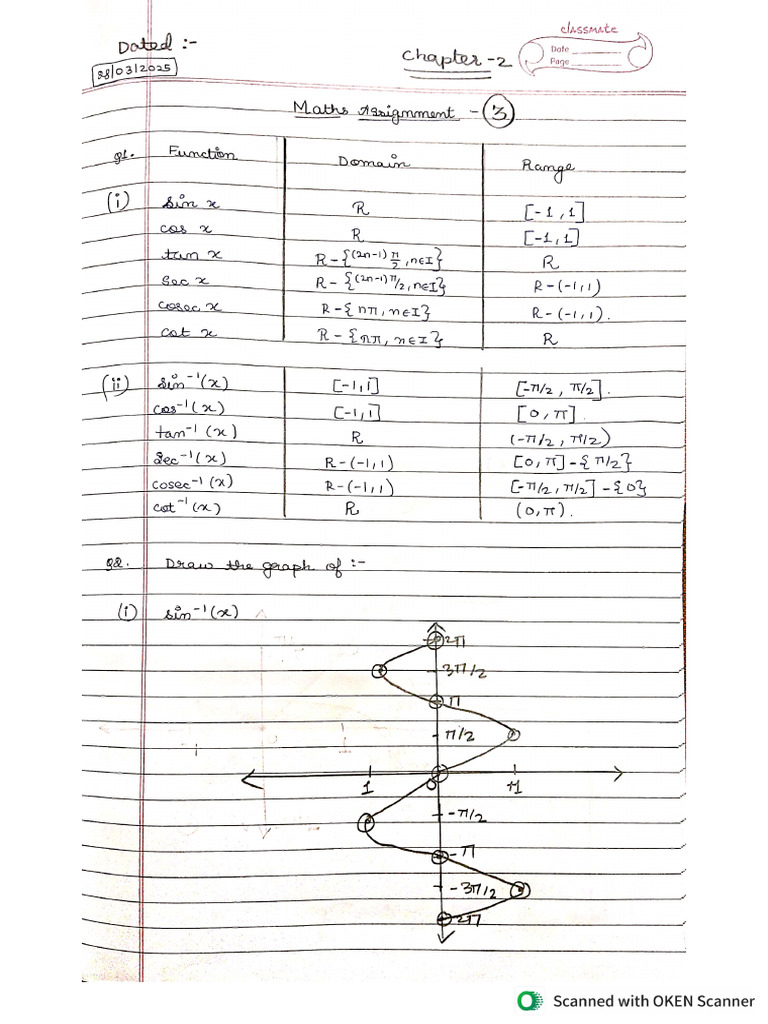 classmate
Dated :-
Date
Chapter - 2
Page
28/03/2025
Maths Assignment - (3)
Q1. Function Domain Range
(i) sin x R [-1, 1]
cos x R [-1, 1]
tan x R - {(2n-1) π/2, n∈I} R
sec x R - {(2n-1) π/2, n∈I} R - (-1, 1)
cosec x R - {nπ, n∈I} R - (-1, 1).
cot x R - {nπ, n∈I} R
(ii) sin⁻¹(x) [-1, 1] [-π/2, π/2].
cos⁻¹(x) [-1, 1] [0, π].
tan⁻¹(x) R (-π/2, π/2)
sec⁻¹(x) R - (-1, 1) [0, π] - {π/2}
cosec⁻¹(x) R - (-1, 1) [-π/2, π/2] - {0}
cot⁻¹(x) R (0, π).
Q2. Draw the graph of :-
(i) sin⁻¹(x)
2π
3π/2
π
π/2
1 0
-π/2
-π
-3π/2
2π
Scanned with OKEN Scanner